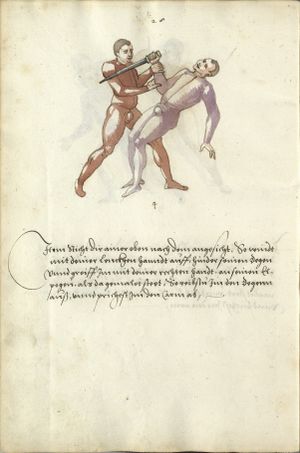 28
4
Item sticht dir ainer oben nach dem angesicht. So windt
mit deiner lincken handt auff hinder seinen degen
unnd greiff im mit deiner rechten handt an seinen el
pogen als da gemalet stet. So reist im den degenn
auß unnd prichest im den arm ab